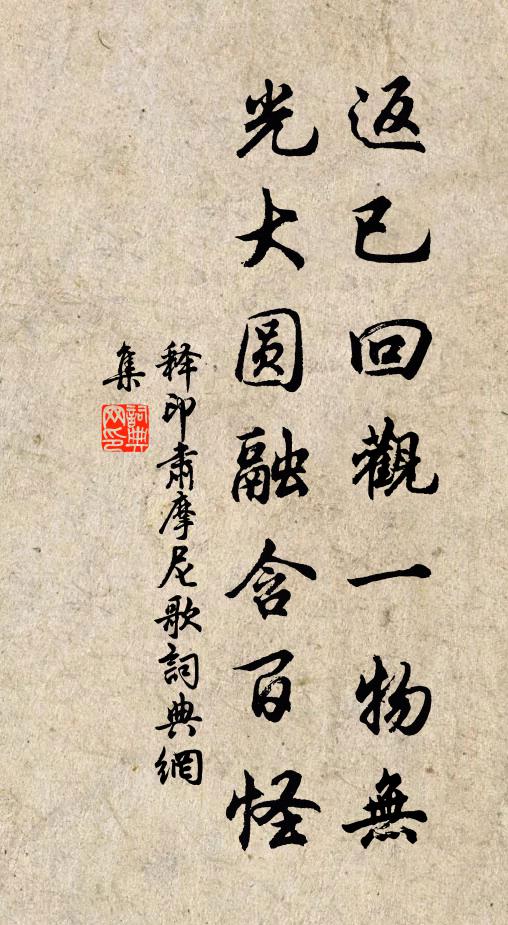 返已回觀一物無
光大圆融含百怪
釋印肅摩尼歌詞典網
集
詞典
网印